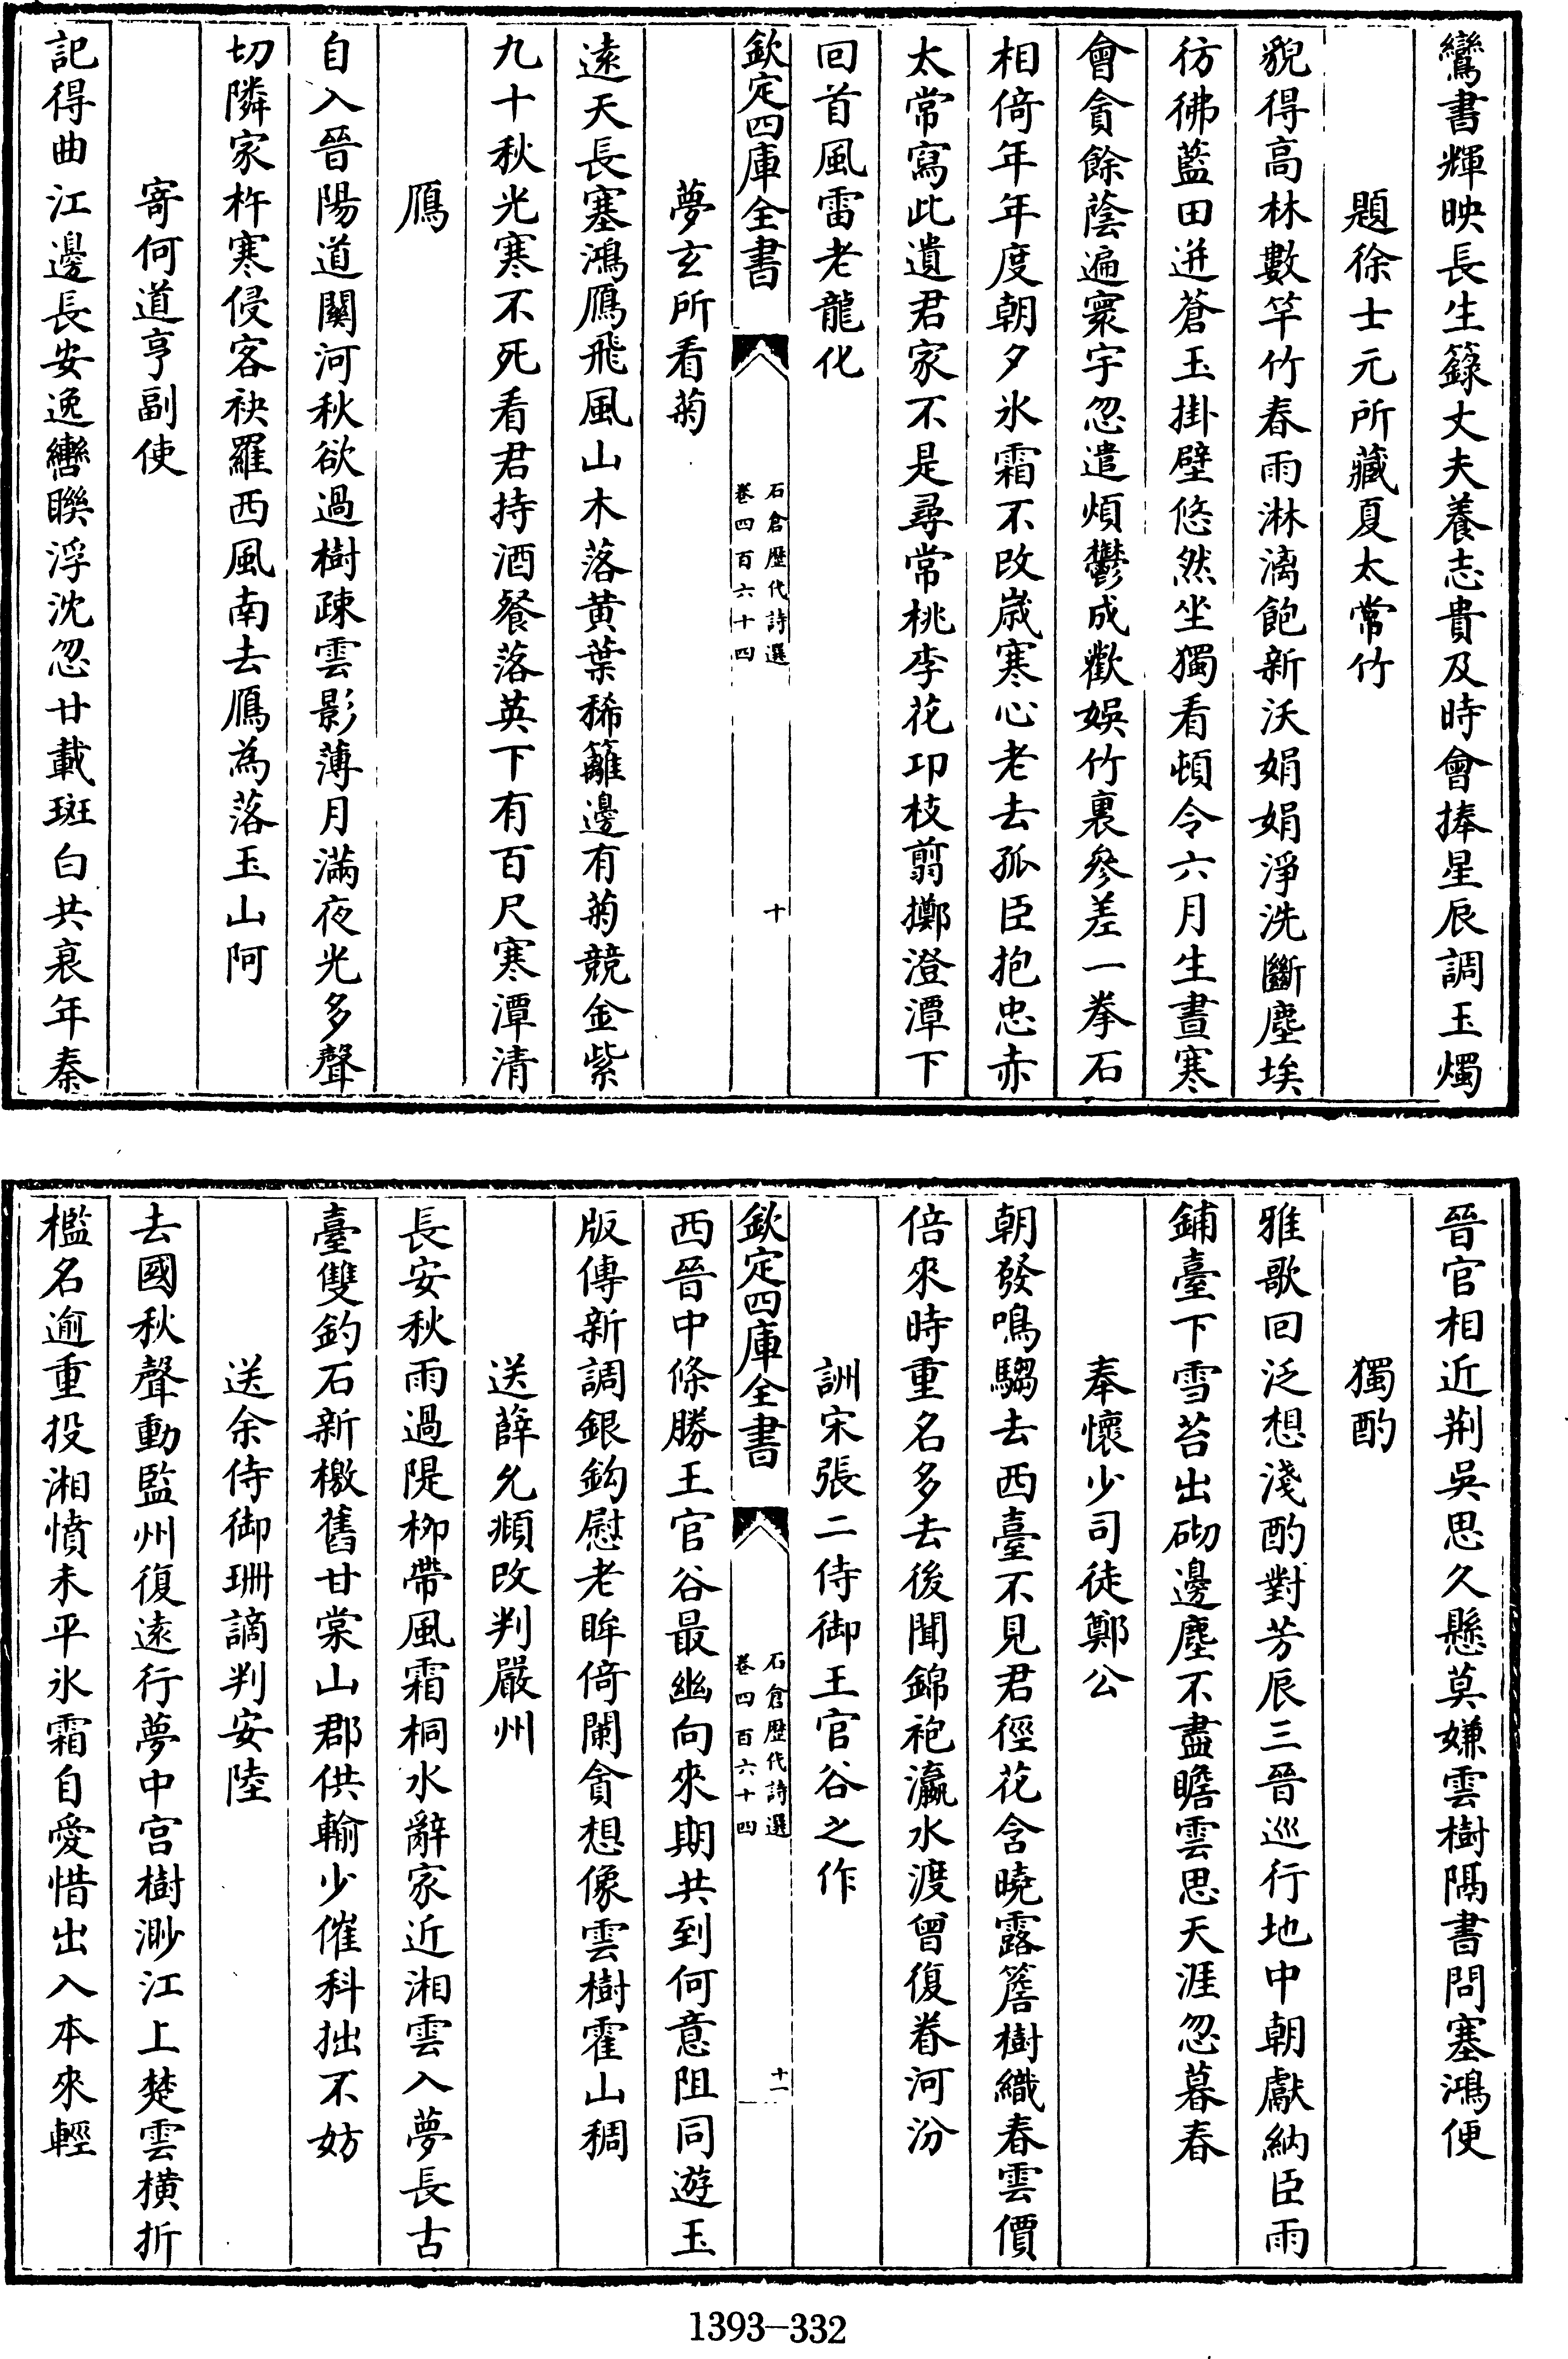 鸞書輝映長生籙丈夫養志貴及時會捧星辰調玉燭
題徐士元所藏夏太常竹
貌得高林數竿竹春雨淋漓飽新沃娟娟淨洗斷塵埃
彷彿藍田迸蒼玉掛壁悠然坐獨看頓令六月生晝寒
會貪餘蔭遍寰宇忽遣煩鬱成歡娛竹裏參差一拳石
相倚年年度朝夕氷霜不改嵗寒心老去孤臣抱忠赤
太常寫此遺君家不是尋常桃李花卭枝翦擲澄潭下
回首風雷老龍化
欽定四庫全書
石倉歴代詩選
卷四百六十四
十
夢玄所看菊
遠天長塞鴻鴈飛風山木落黄葉稀籬邊有菊競金紫
九十秋光寒不死看君持酒餐落英下有百尺寒潭清
鴈
自入晉陽道關河秋欲過樹疎雲影薄月滿夜光多聲
切隣家杵寒侵客袂羅西風南去鴈為落玉山阿
寄何道亨副使
記得曲江邊長安逸轡聨浮沈忽廿載斑白共衰年秦
晉官相近荆吳思久懸莫嫌雲樹隔書問塞鴻便
獨酌
雅歌回泛想淺酌對芳辰三晉巡行地中朝獻納臣雨
鋪臺下雪苔出砌邊塵不盡瞻雲思天涯忽暮春
奉懷少司徒鄭公
朝發鳴騶去西臺不見君徑花含曉露簷樹織春雲價
倍來時重名多去後聞錦袍瀛水渡曾復眷河汾
訓宋張二侍御王官谷之作
欽定四庫全書
石倉歴代詩選
卷四百六十四
十一
西晉中條勝王官谷最幽向來期共到何意阻同遊玉
版傳新調銀鈎慰老眸倚闌貪想像雲樹霍山稠
送薛允頻改判嚴州
長安秋雨過隄栁帶風霜桐水辭家近湘雲入夢長古
臺雙釣石新檄舊甘棠山郡供輸少催科拙不妨
送余侍御珊謫判安陸
去國秋聲動監州復遠行夢中宫樹渺江上楚雲横折
檻名逾重投湘憤未平氷霜自愛惜出入本來輕
1393-332